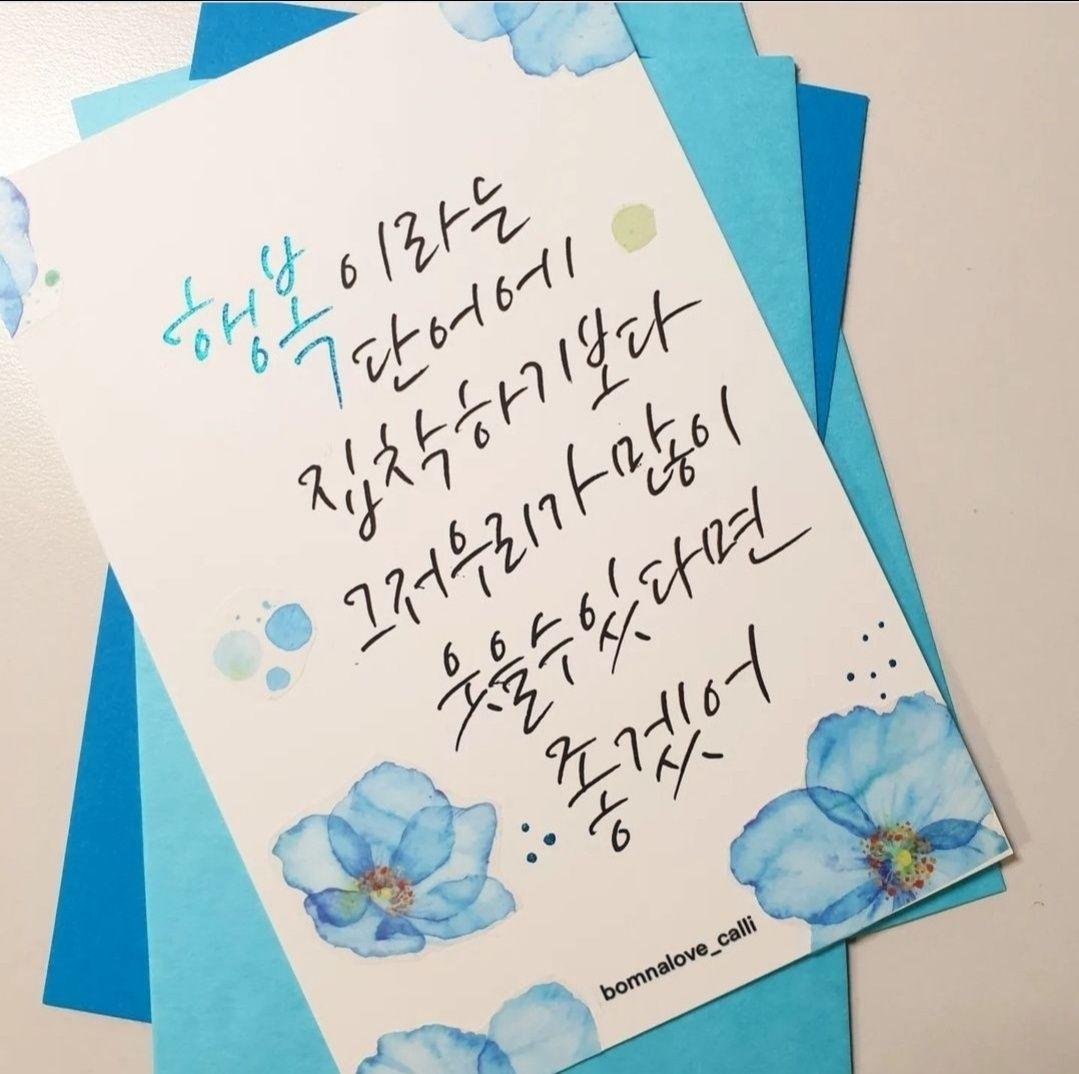 행복이라는
단어에
집착하기보다
그저우리가많이
웃을수있다면
좋겠어
bomnalove_calli